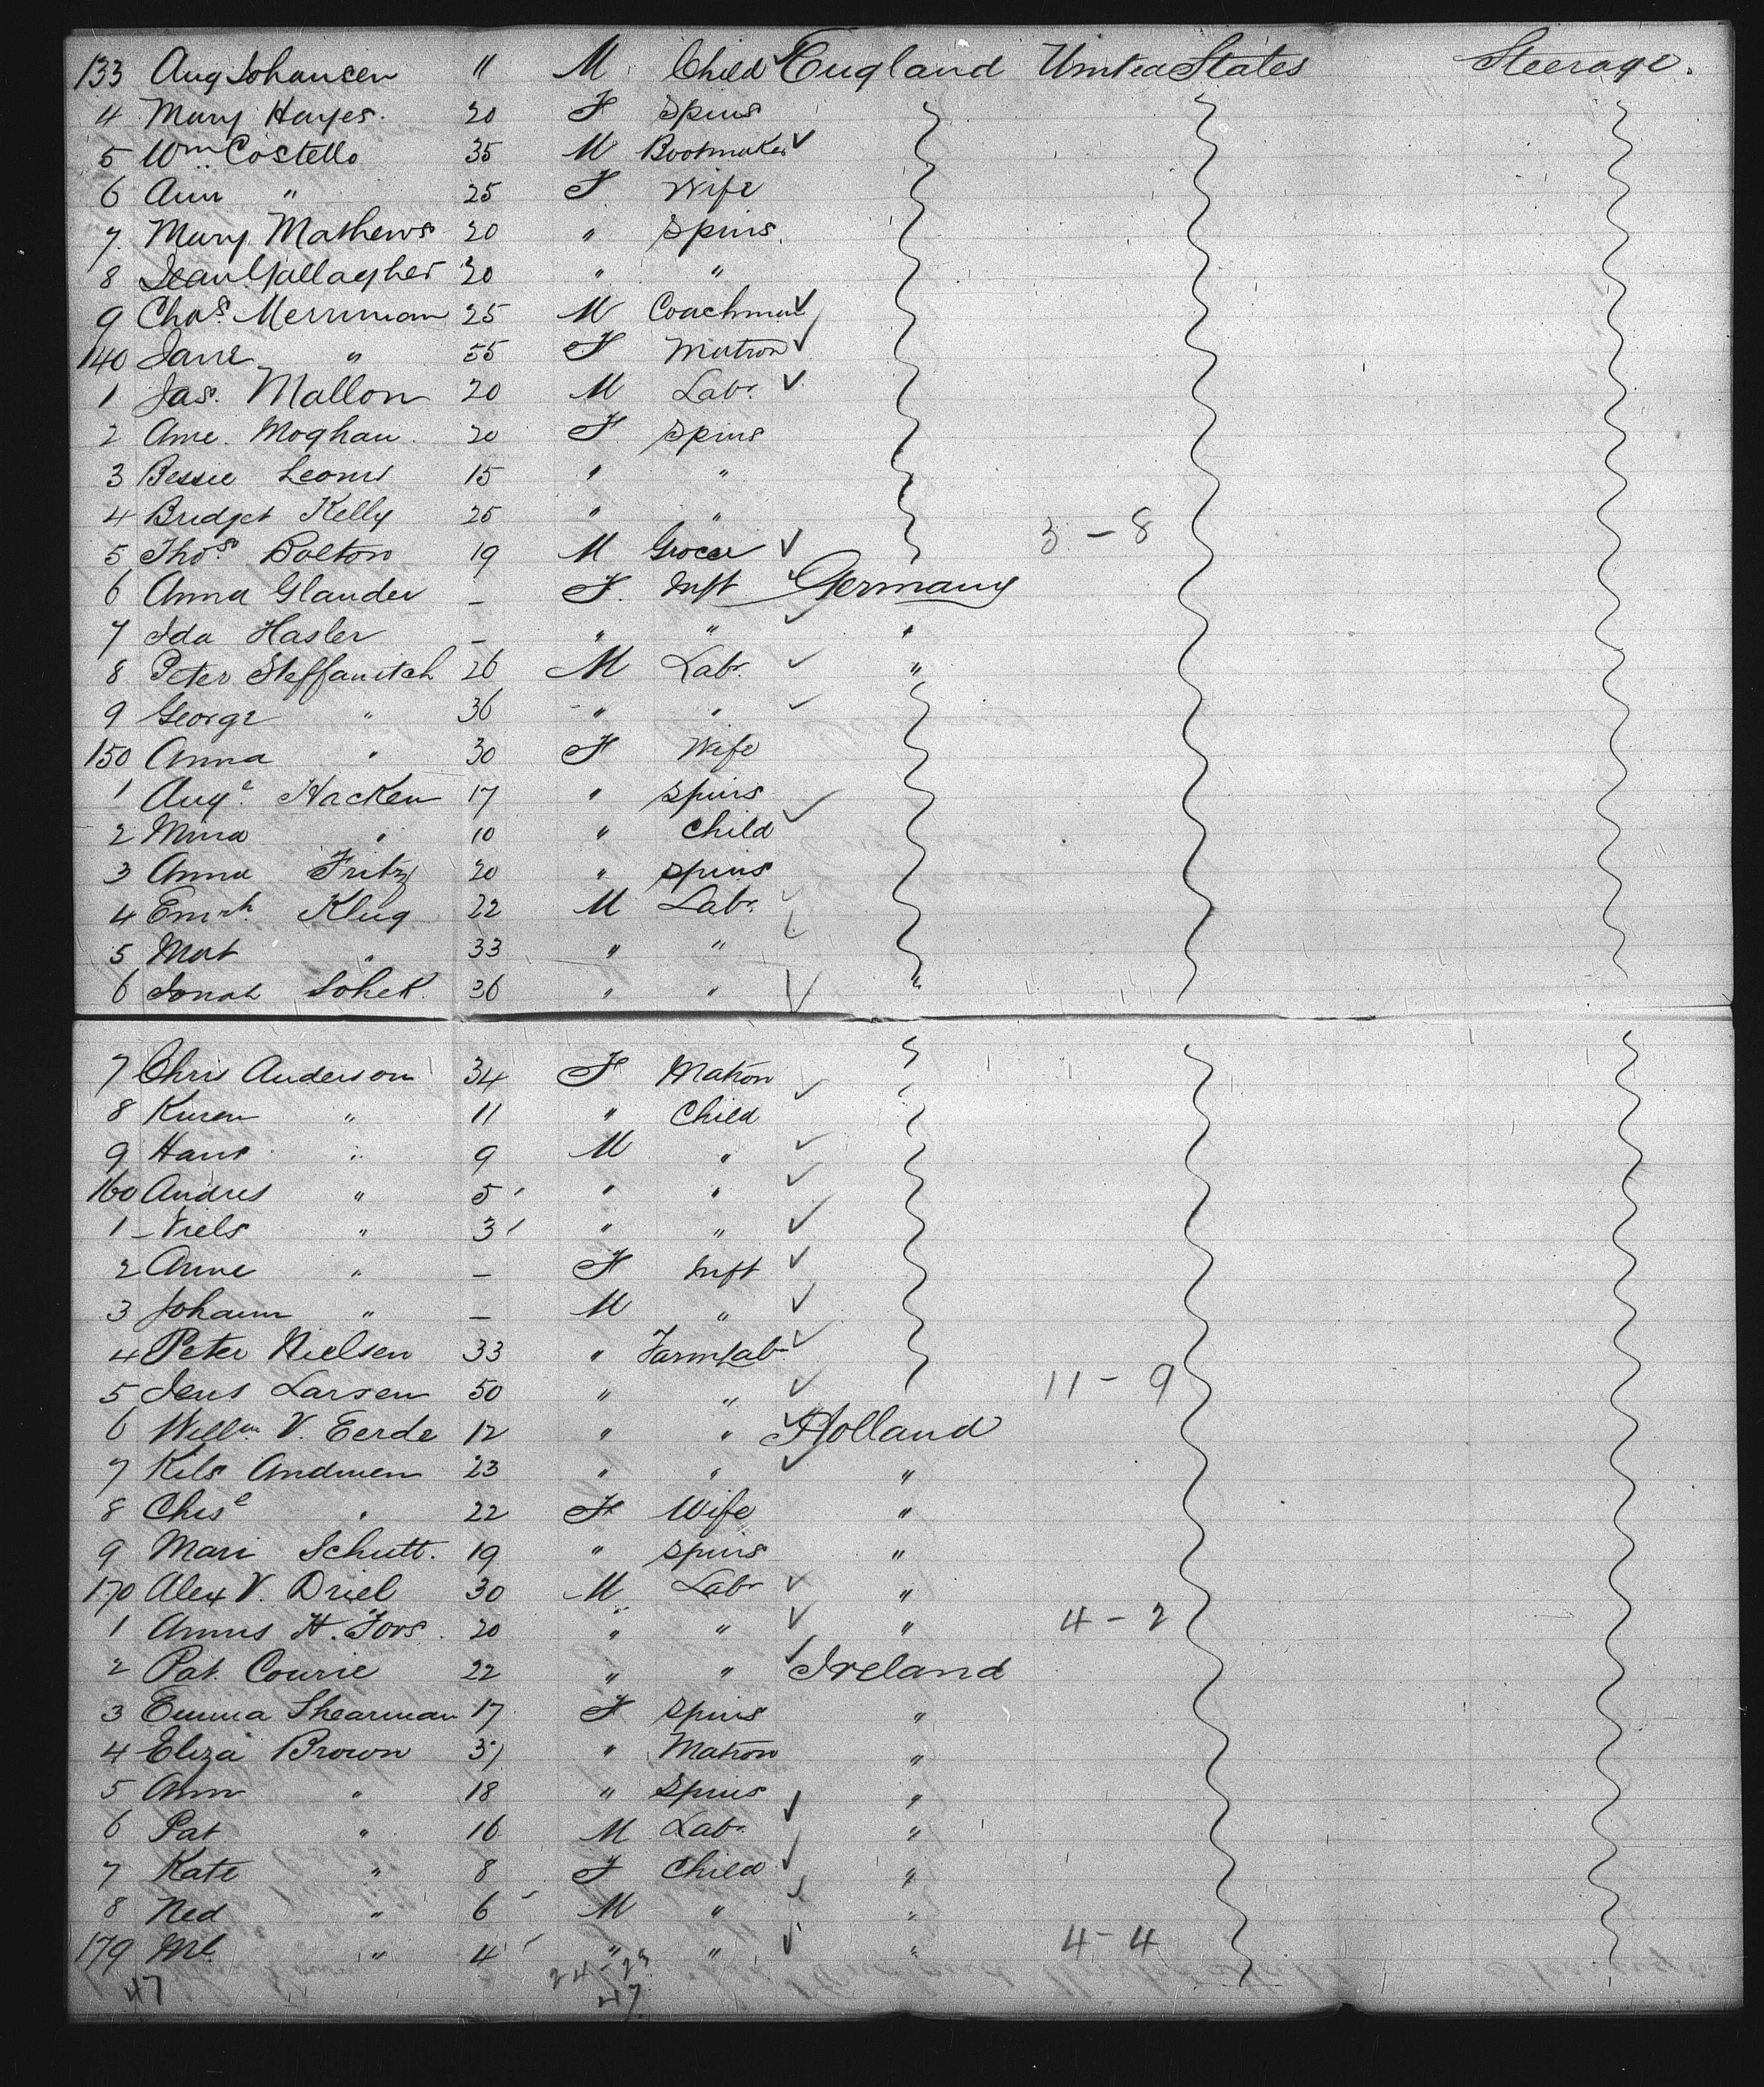 133 Aug Johansen 11 M Child England United States Steerage.
4 Mary Hayes. 20 F Spins
5 Wm Costello 35 M Bootmaker
6 Ann " 25 F Wife
7. Mary Mathews 20 " Spins.
8 Jean Gallagher 20 " "
9 Chas. Merriman 25 M Coachman
140 Jane " 55 F Matron
1 Jas. Mallon 20 M Labr.
2 Ame. Moghan. 20 F Spins
3 Bessie 15 " "
4 Bridget Kelly 25 " "
3 - 8
5 Thos. Bolton 19 M Grocer
6 Anna Glander - F. Inft Germany
7 Ida Hasler - " " "
8 Peter Steffanitch 26 M Labr. "
9 George " 36 " "
150 Anna " 30 F Wife
1 Auge. Hacken 17 " Spins
2 Mina " 10 " Child
3 Anna Fritz 20 " Spins
4 Klug 22 M Labr.
5 Mat " 33 " "
6 36 " " "
7 Chris Anderson 34 F Matron
8 Karen " 11 " Child
9 Hans " 9 M "
160 Andres " 5 " "
1 Niels " 3 " "
2 Anne " - F Inft
3 Johann " - M "
4 Peter Nielsen 33 " Farm Lab
5 Jens Larsen 50 " " 11 - 9
6 Willm V. Eerde 12 " " Holland
7 Kils 23 " " "
8 Chise " 22 F Wife "
9 Mari Schutt. 19 " Spins "
170 Alex V. Driel 30 M Labr "
1 Annus H. Fors. 20 " " " 4 - 2
2 Pat. Courie 22 " " Ireland
3 Emma Shearman 17 F Spins "
4 Eliza Brown 37 " Matron "
5 Ann " 18 " Spins "
6 Pat " 16 M Labr "
7 Kate " 8 F Child "
8 Ned " 6 M " "
179 Ml " 4 " " " 4 - 4
47 24 - 23
47